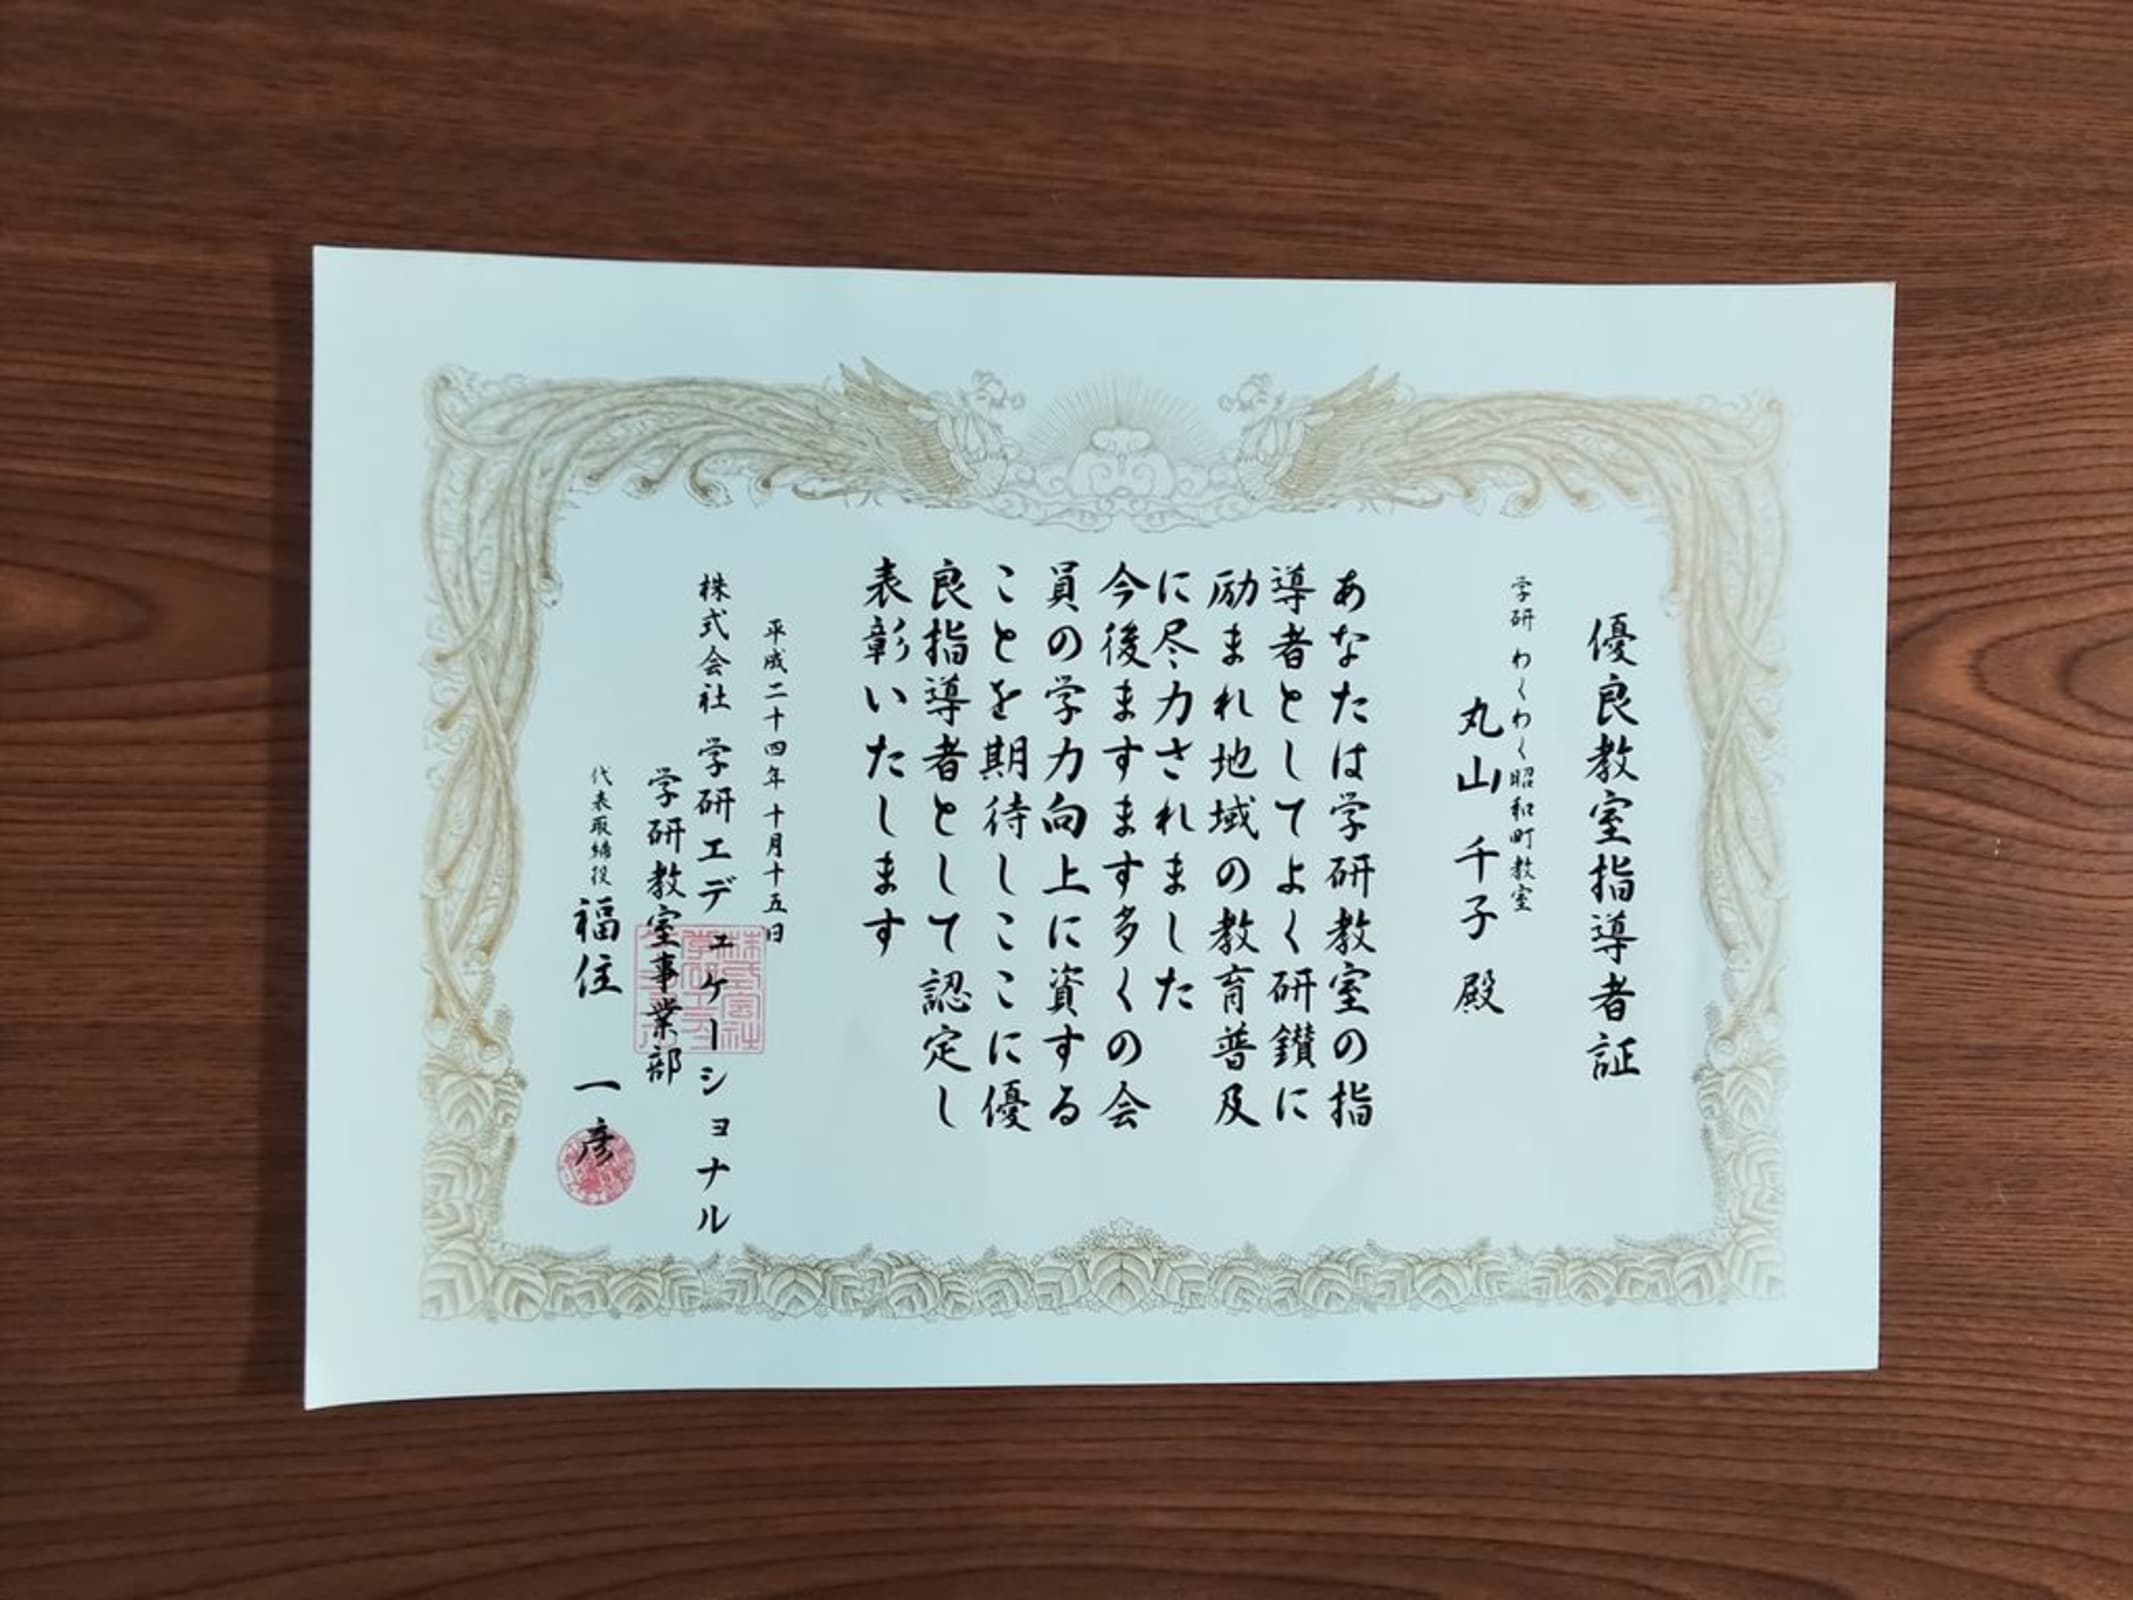 優良教室指導者証
学研 わくわく昭和町教室
丸山 千子 殿
あなたは学研教室の指
導者としてよく研鑽に
励まれ地域の教育普及
に尽力されました
今後ますます多くの会
員の学力向上に資する
ことを期待しここに優
良指導者として認定し
表彰いたします
平成二十四年十月十五日
株式会社 学研エデュケーショナル
学研教室事業部
代表取締役 福住 一彦